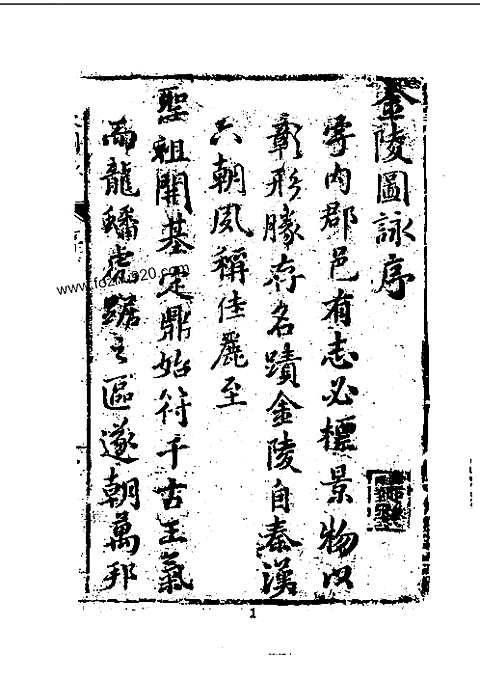 金陵圖詠序
宇內郡邑有志必標景物以
彰形勝存名蹟金陵自秦漢
六朝夙稱佳麗至
聖祖開基定鼎始符千古王氣
而龍蟠虎踞之區遂朝萬邦
1